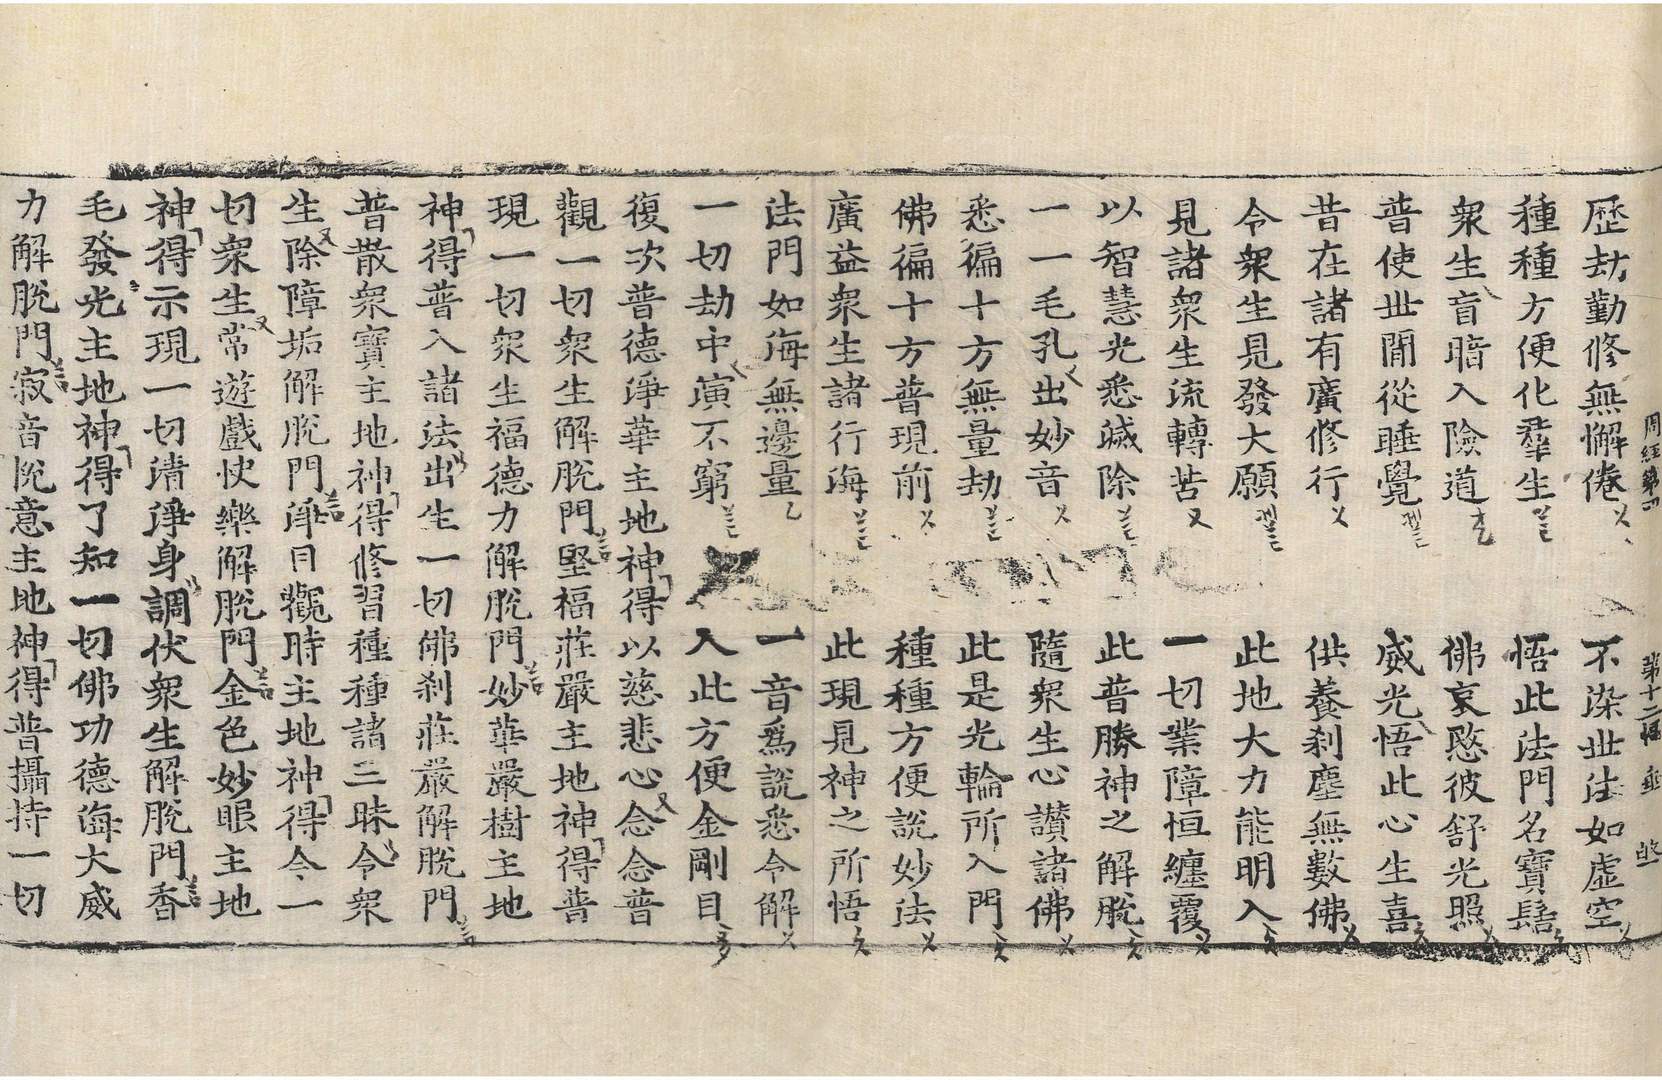 周経第四　第十二幅　亟
歷劫勤修無懈倦　不染世法如虛空
種種方便化羣生　悟此法門名寶髻
衆生盲暗入險道　佛哀愍彼舒光照
普使世間從睡覺　威光悟此心生喜
昔在諸有廣修行　供養刹塵無數佛
令衆生見發大願　此地大力能明入
見諸衆生流轉苦　一切業障恒纏覆
以智慧光悉滅除　此普勝神之解脫
一一毛孔出妙音　隨衆生心讃諸佛
悉徧十方無量劫　此是光輪所入門
佛徧十方普現前　種種方便說妙法
廣益衆生諸行海　此現見神之所悟
法門如海無邊量　一音爲說悉令解
一切劫中演不窮　入此方便金剛目
復次普德淨華主地神得以慈悲心念念普
觀一切衆生解脫門堅福莊嚴主地神得普
現一切衆生福德力解脫門妙華嚴樹主地
神得普入諸法出生一切佛刹莊嚴解脫門
普散衆寶主地神得修習種種諸三昧令衆
生除障垢解脫門淨目觀時主地神得令一
切衆生常遊戲快樂解脫門金色妙眼主地
神得示現一切清淨身調伏衆生解脫門香
毛發光主地神得了知一切佛功德海大威
力解脫門寂音悅意主地神得普攝持一切